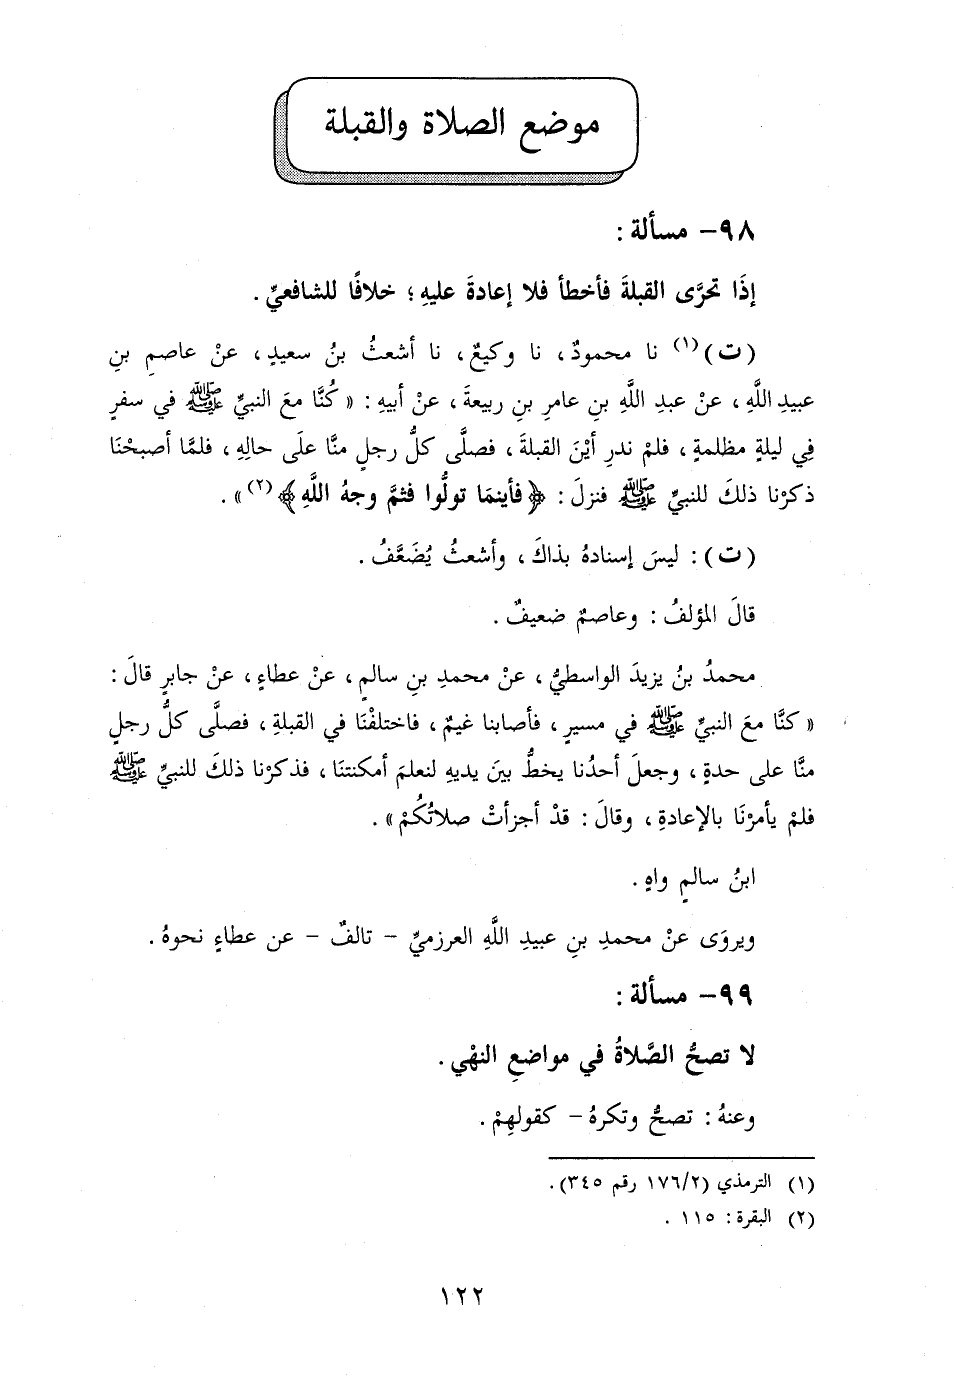 موضع الصلاة والقبلة
٩٨- مسألة :
إذَا تحرَّى القبلةَ فأخطأ فلا إعادةَ عليهِ ؛ خلافًا للشافعيِّ .
(ت)(١) نا محمودٌ، نا وكيعٌ، نا أشعثُ بنُ سعيدٍ، عنْ عاصمِ بنِ
عبيدِ اللَّهِ، عنْ عبدِ اللَّهِ بنِ عامرِ بنِ ربيعةَ، عنْ أبيهِ : «كُنَّا معَ النبيِّ ﷺ في سفرٍ
فِي ليلةٍ مظلمةٍ، فلمْ ندرِ أيْنَ القبلةَ، فصلَّى كلُّ رجلٍ منَّا علَى حالِهِ، فلمَّا أصبحْنَا
ذكرْنا ذلكَ للنبيِّ ﷺ فنزلَ : ﴿فأينمَا تولُّوا فثمَّ وجهُ اللَّهِ﴾(٢)» .
(ت) : ليسَ إسنادهُ بذاكَ، وأشعثُ يُضَعَّفُ .
قالَ المؤلفُ : وعاصمٌ ضعيفٌ .
محمدُ بنُ يزيدَ الواسطيُّ، عنْ محمدِ بنِ سالمٍ، عنْ عطاءٍ، عنْ جابرٍ قالَ :
«كنَّا معَ النبيِّ ﷺ في مسيرٍ، فأصابنا غيمٌ، فاختلفْنَا في القبلةِ، فصلَّى كلُّ رجلٍ
منَّا على حدةٍ، وجعلَ أحدُنا يخطُّ بينَ يديهِ لنعلمَ أمكنتنَا، فذكرْنا ذلكَ للنبيِّ ﷺ
فلمْ يأمرْنَا بالإعادةِ، وقالَ : قدْ أجزأتْ صلاتُكُمْ» .
ابنُ سالمٍ واهٍ .
ويروَى عنْ محمدِ بنِ عبيدِ اللَّهِ العرزميِّ - تالفٌ - عن عطاءٍ نحوهُ .
٩٩- مسألة :
لا تصحُّ الصَّلاةُ في مواضعِ النهْي .
وعنهُ : تصحُّ وتكرهُ - كقولهِمْ .
(١) الترمذي (١٧٦/٢ رقم ٣٤٥).
(٢) البقرة : ١١٥ .
١٢٢